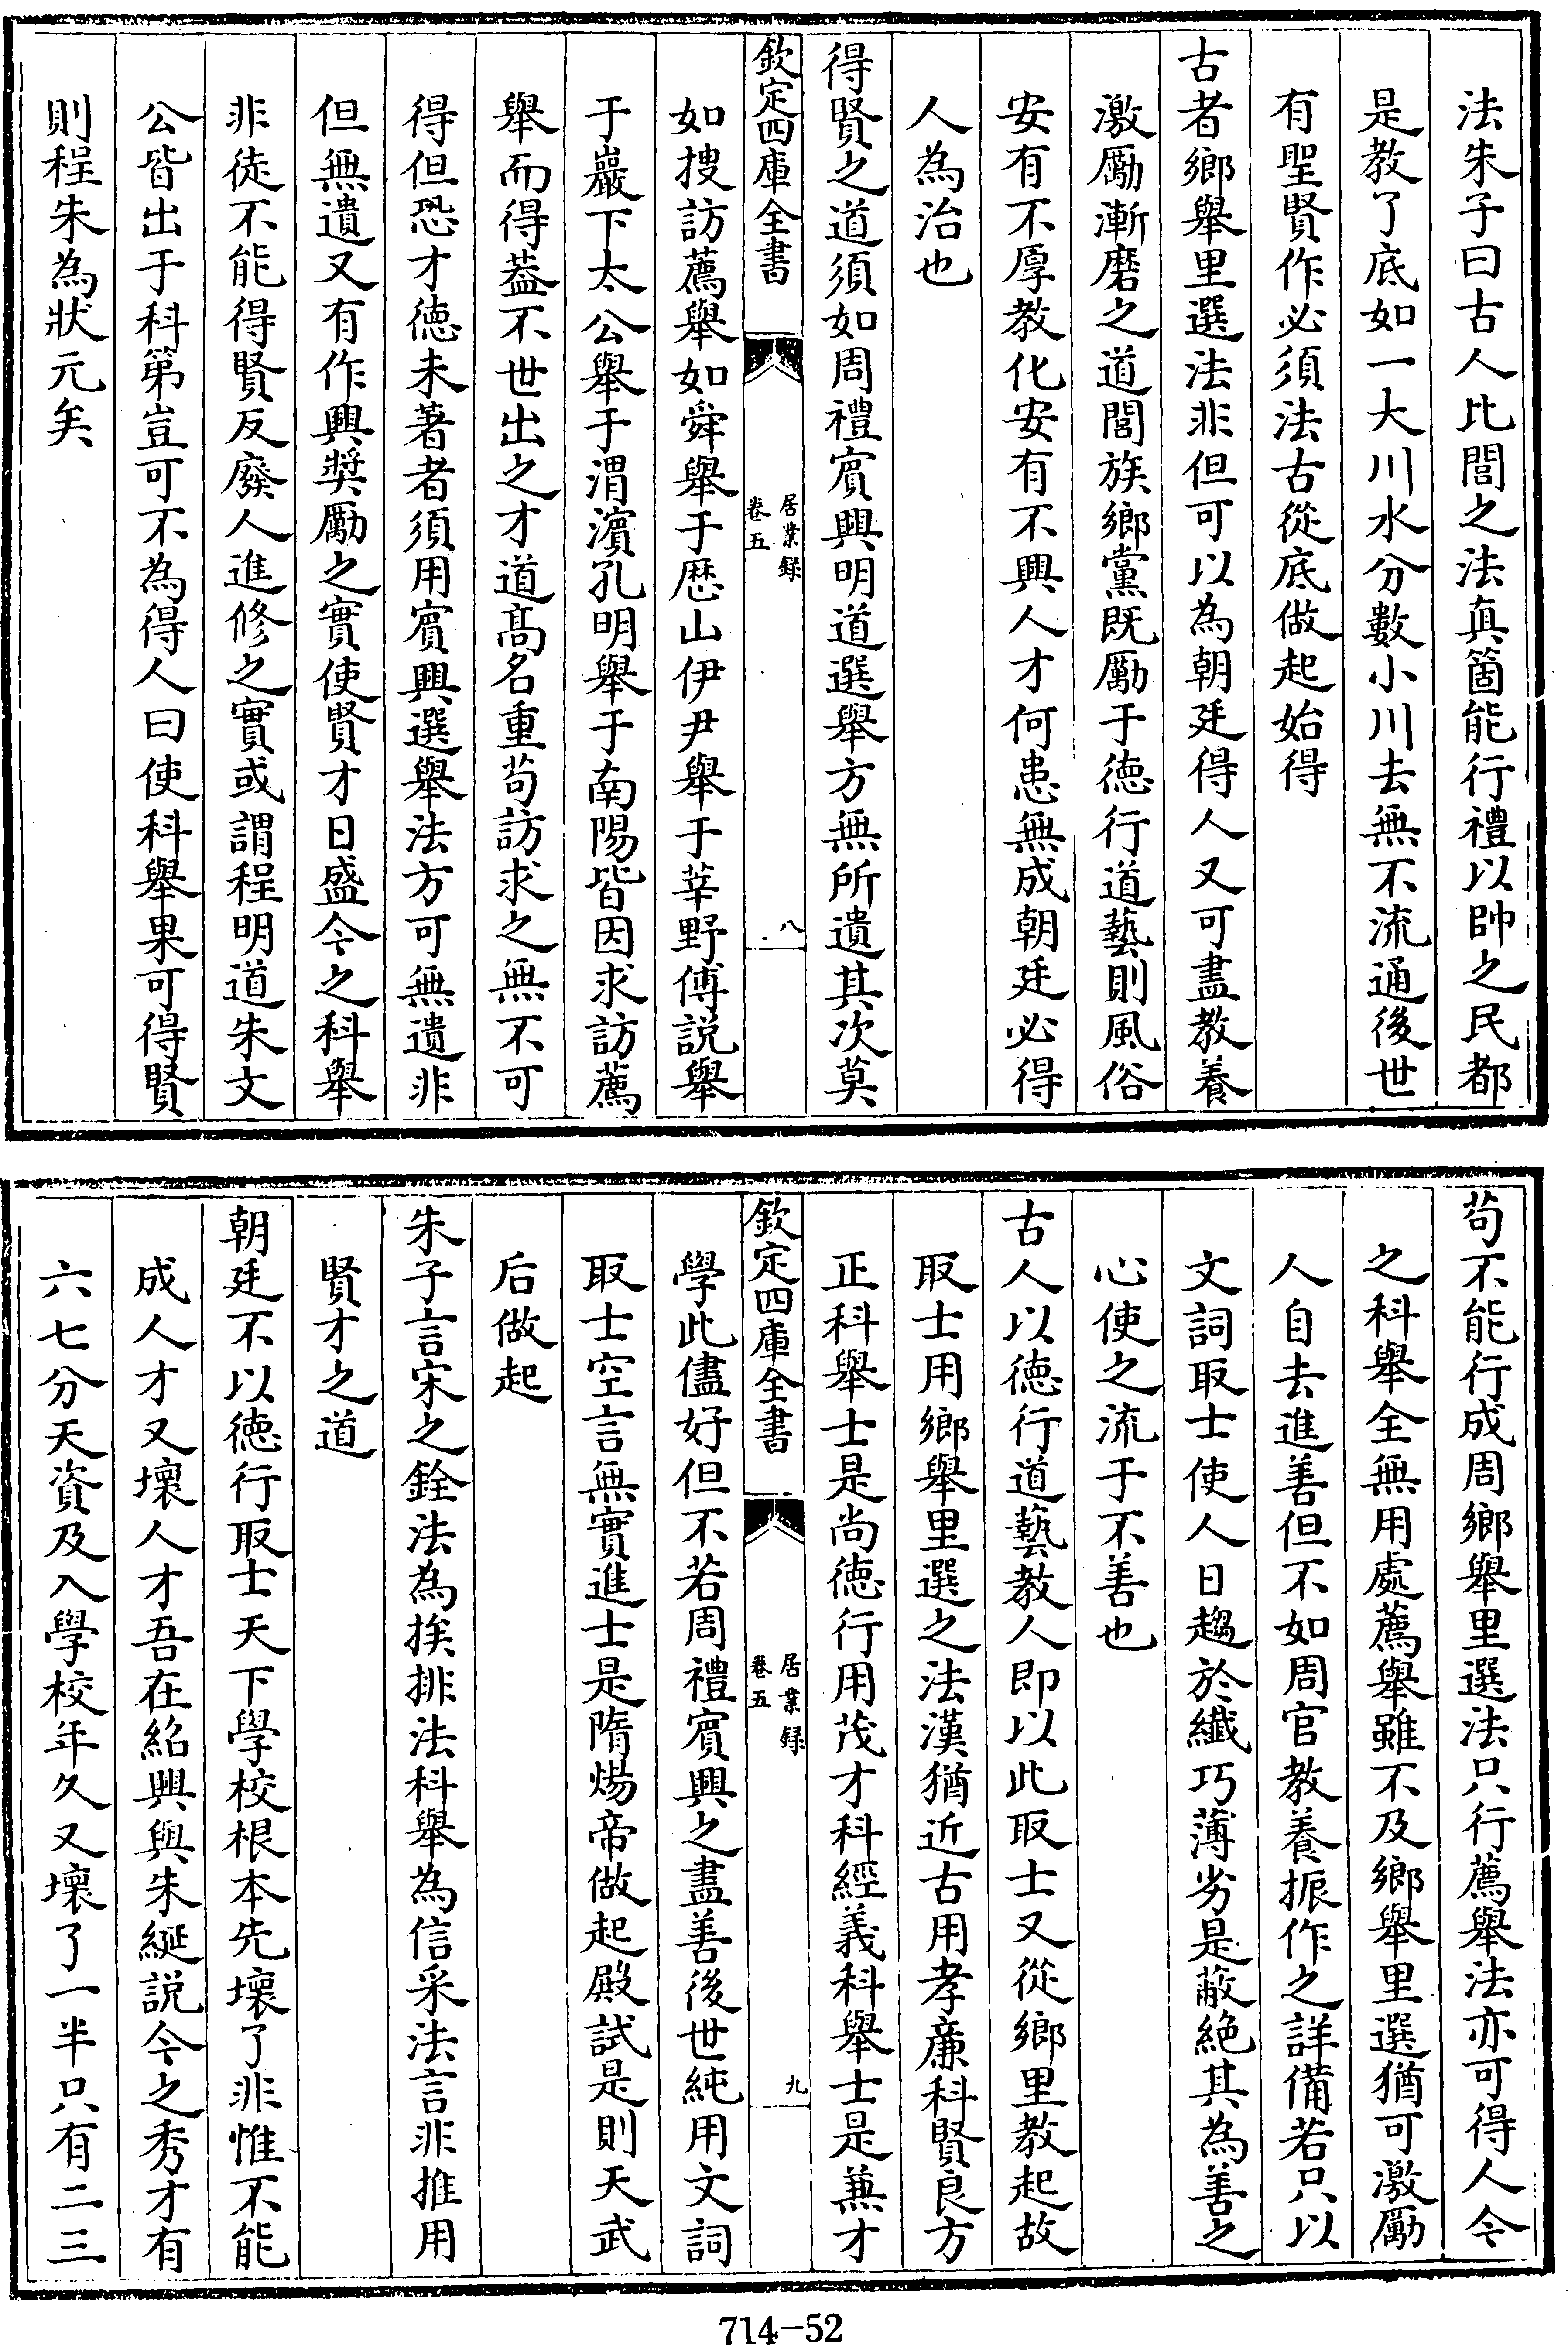 法朱子曰古人比閭之法真箇能行禮以帥之民都
是教了底如一大川水分數小川去無不流通後世
有聖賢作必須法古從底做起始得
古者鄉舉里選法非但可以為朝廷得人又可盡教養
激勵漸磨之道閭族鄉黨既勵于徳行道藝則風俗
安有不厚教化安有不興人才何患無成朝廷必得
人為治也
得賢之道須如周禮賔興明道選舉方無所遺其次莫
欽定四庫全書
居業録
卷五
八
如搜訪薦舉如舜舉于厯山伊尹舉于莘野傅說舉
于巖下太公舉于渭濵孔明舉于南陽皆因求訪薦
舉而得葢不世出之才道髙名重苟訪求之無不可
得但恐才徳未著者須用賔興選舉法方可無遺非
但無遺又有作興奬勵之實使賢才日盛今之科舉
非徒不能得賢反廢人進修之實或謂程明道朱文
公皆出于科第豈可不為得人曰使科舉果可得賢
則程朱為狀元矣
苟不能行成周鄉舉里選法只行薦舉法亦可得人今
之科舉全無用處薦舉雖不及鄉舉里選猶可激勵
人自去進善但不如周官教養振作之詳備若只以
文詞取士使人日趨於纎巧薄劣是蔽絶其為善之
心使之流于不善也
古人以徳行道藝教人即以此取士又從鄉里教起故
取士用鄉舉里選之法漢猶近古用孝廉科賢良方
正科舉士是尚徳行用茂才科經義科舉士是兼才
欽定四庫全書
居業録
卷五
九
學此儘好但不若周禮賔興之盡善後世純用文詞
取士空言無實進士是隋煬帝做起殿試是則天武
后做起
朱子言宋之銓法為挨排法科舉為信采法言非推用
賢才之道
朝廷不以徳行取士天下學校根本先壞了非惟不能
成人才又壞人才吾在紹興與朱綖説今之秀才有
六七分天資及入學校年久又壞了一半只有二三
714-52